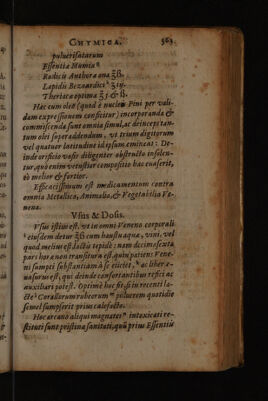 CHYMICA. 363
pulverisatarum
Essentiæ Mumiæ
Radicis Anthoræ ana ʒß.
Lapidis Bezoardici
Theriacæ optimæ ʒj & ß.
Hæc cum oleo (quod è nucleis Pini per vali-
dam expressionem conficitur) incorporanda &
commiscenda sunt omnia simul, ac deinceps tan-
tum olei superaddendum, ut trium digitorum
vel quatuor latitudine id ipsum emineat: De-
inde orificio vasis diligenter obstructo insolen-
tur, quò enim vetustior compositio hæc evaserit,
eò melior & fortior.
Efficacissimum est medicamentum contra
omnia Metallica, Animalia, & Vegetabilia Ve-
nena.
Usus & Dosis.
Usus istius est, ut in omni Veneno corporali
ejusdem detur ʒß cum haustu aquæ, vini, vel
quod melius est lactis tepidè: nam decima sexta
pars horæ non transitura est, quin patiens Vene-
ni sumpti substantiam à se ejiciet, ac libera-
usurus est, qui deinde confortantibus refici ac
auxiliari potest. Optimè hoc fit, si in recenti la-
cte Corallorum rubeorum pollurem quotidie
semel sumpserit prius calefacto.
Hoc arcano aliqui magnates intoxicati re-
stituti sunt pristinæ sanitati, qui prius Essentiis